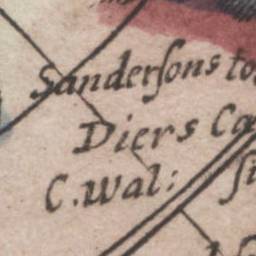 Sanderſons to
Diers Ca
C.Wal: ſi